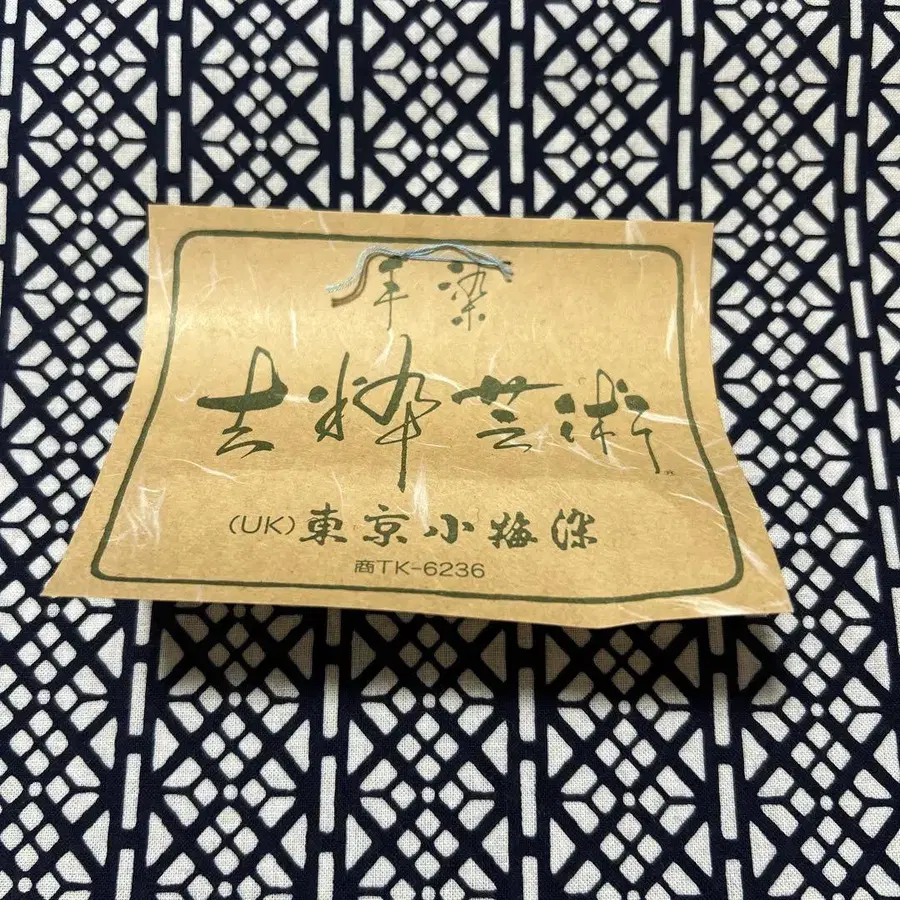 手染
吉粋芸術
(UK)東京小梅染
商TK-6236